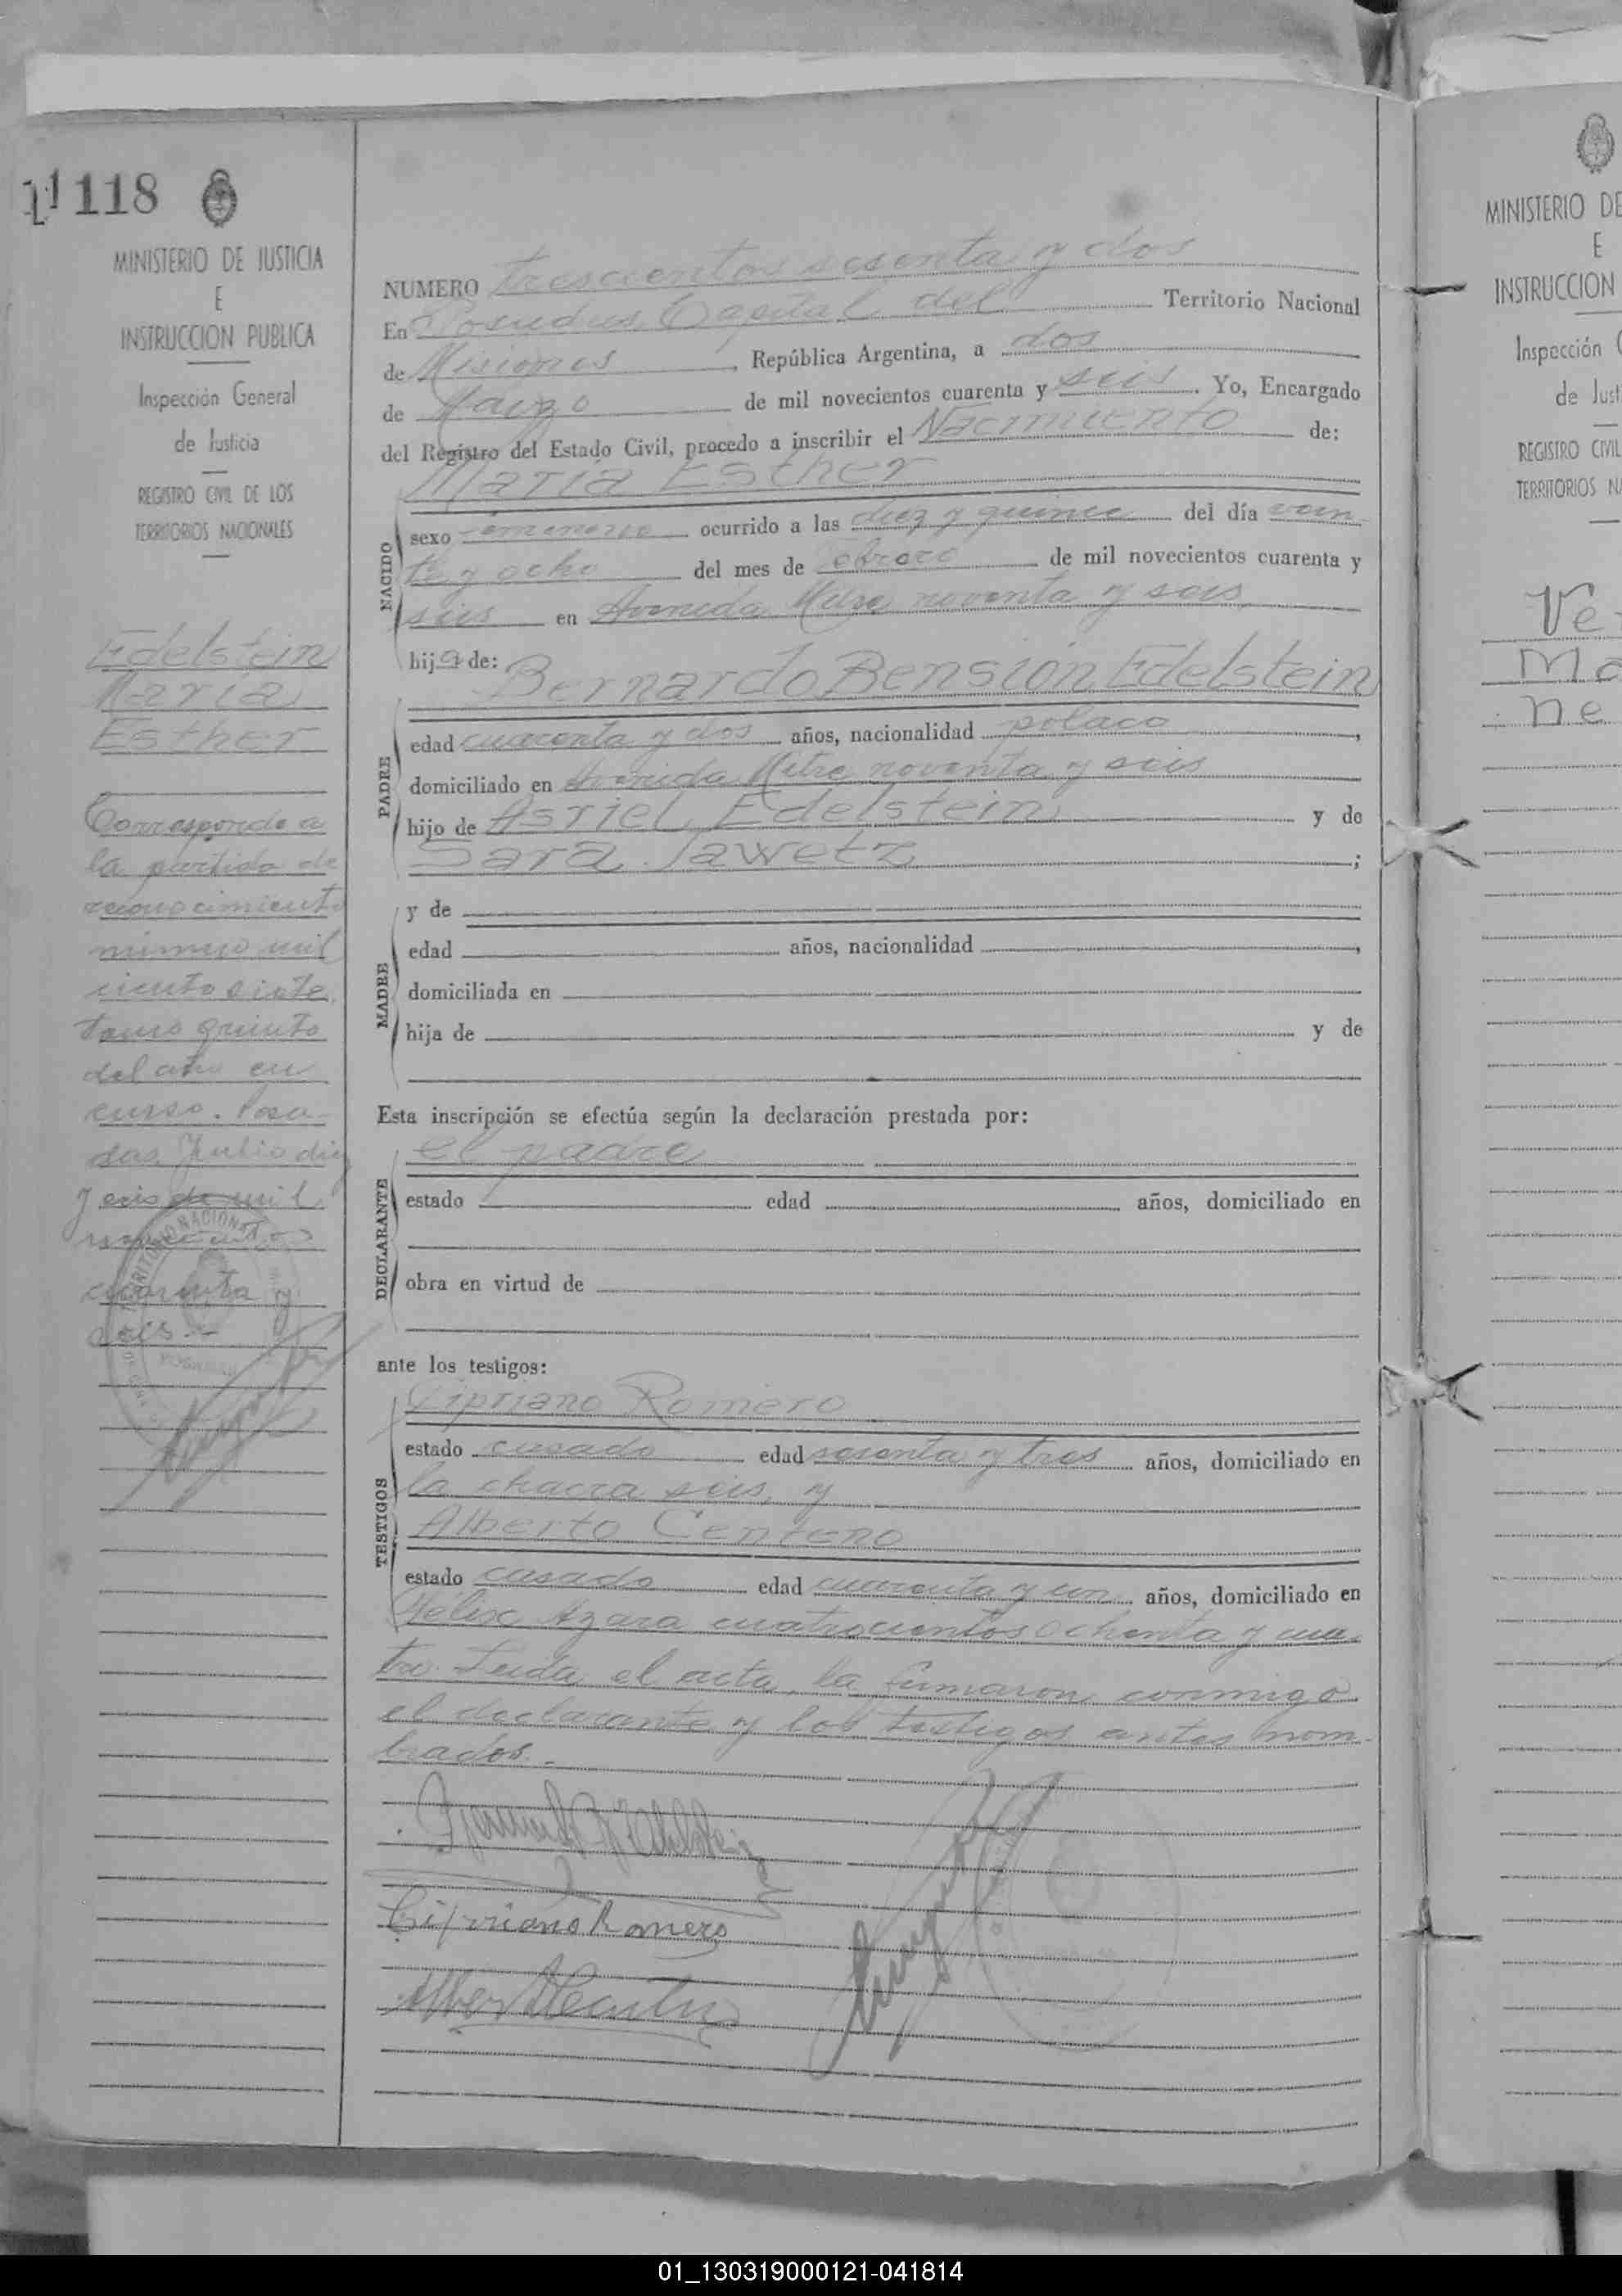 118
MINISTERIO DE JUSTICIA
E
INSTRUCCION PUBLICA
Inspección General
de Justicia
REGISTRO CIVIL DE LOS
TERRITORIOS NACIONALES
Edelstein
María
Esther
Corresponde a
la partida de
reconocimiento
número mil
ciento siete
tomo quinto
del año en
curso. Posa-
das, Julio diez
y seis de mil
novecientos
cuarenta y
seis.-
NUMERO trescientos sesenta y dos
En Posadas, Capital del Territorio Nacional
de Misiones, República Argentina, a dos
de Marzo de mil novecientos cuarenta y seis. Yo, Encargado
del Registro del Estado Civil, procedo a inscribir el Nacimiento de:
María Esther
NACIDO
sexo femenino ocurrido a las diez y quince del día vein-
te y ocho del mes de febrero de mil novecientos cuarenta y
seis en Avenida Mitre noventa y seis
hija de:
Bernardo Bensión Edelstein
PADRE
edad cuarenta y dos años, nacionalidad polaco,
domiciliado en Avenida Mitre noventa y seis
hijo de Asriel Edelstein y de
Sara Jawetz;
MADRE
y de
edad años, nacionalidad,
domiciliada en
hija de y de
Esta inscripción se efectúa según la declaración prestada por:
el padre
DECLARANTE
estado edad años, domiciliado en
obra en virtud de
ante los testigos:
Cipriano Romero
TESTIGOS
estado casado edad sesenta y tres años, domiciliado en
la chacra seis, y
Alberto Centeno
estado casado edad cuarenta y un años, domiciliado en
Félix Azara cuatrocientos ochenta y cua-
tro. Leida el acta, la firmaron conmigo
el declarante y los testigos antes nom-
brados.-
Cipriano Romero
MINISTERIO DE
E
INSTRUCCION
Inspección
de Just
REGISTRO CIVIL
TERRITORIOS NA
Ve
Ma
ne
01_130319000121-041814